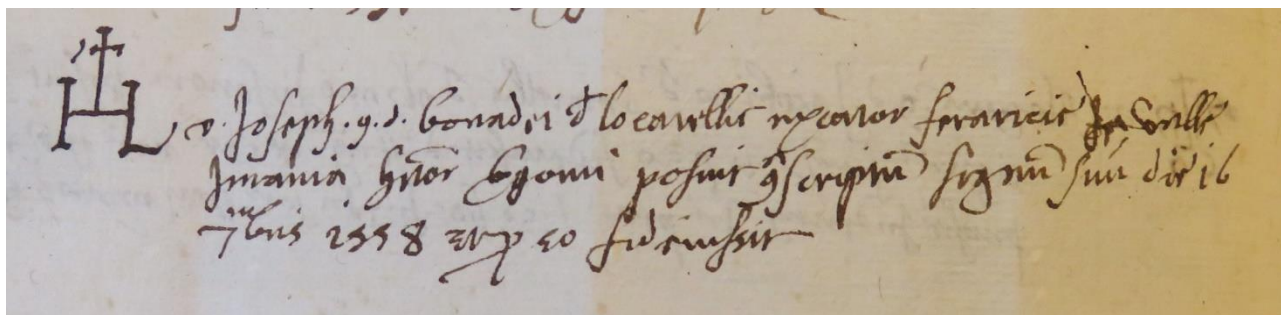 D. Joseph. q. d. bonadei d locatellis mercator feraricie de valle
Imania hitor bgomi posuit q scriptu signu suu die 16
7bris 1558 et p eo fideiussit